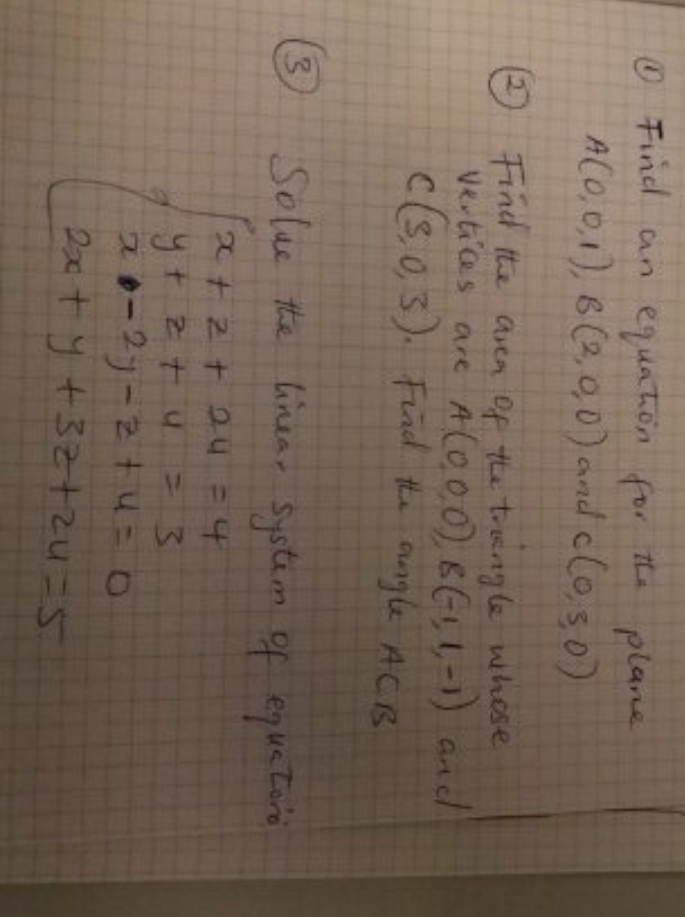 ① Find an equation for the plane
A(0,0,1), B(2,0,0) and C(0,3,0)
② Find the area of the triangle whose
vertices are A(0,0,0), B(-1,1,-1) and
C(3,0,3). Find the angle ACB
③ Solve the linear system of equations
x + z + 2u = 4
y + z + u = 3
x - 2y - z + u = 0
2x + y + 3z + 2u = 5